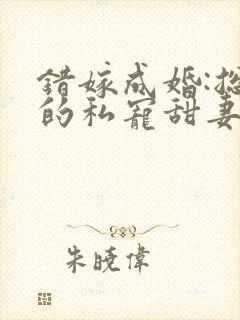 錯嫁成婚:
的私寵甜妻
朱曉偉